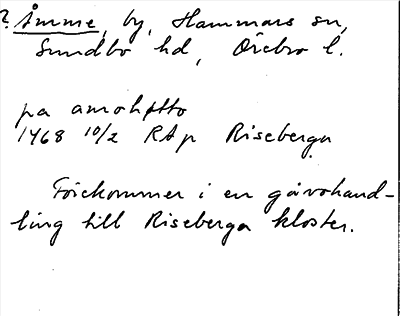 ? Åmme, by, Hammars sn,
Sundbo hd, Örebro l.
pa amohptto
1468 10/2 RAp Riseberga
Förekommer i en gåvohand-
ling till Riseberga kloster.